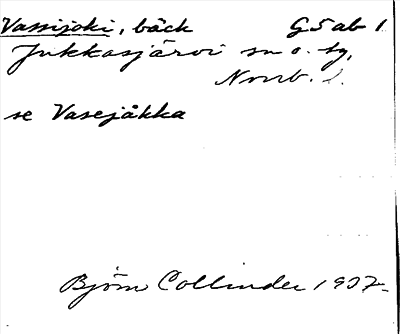 Vassijoki, bäck G5ab1
Jukkasjärvi sn o. tg,
Norrb. l.
se Vasejåkka
Björn Collinder 1937